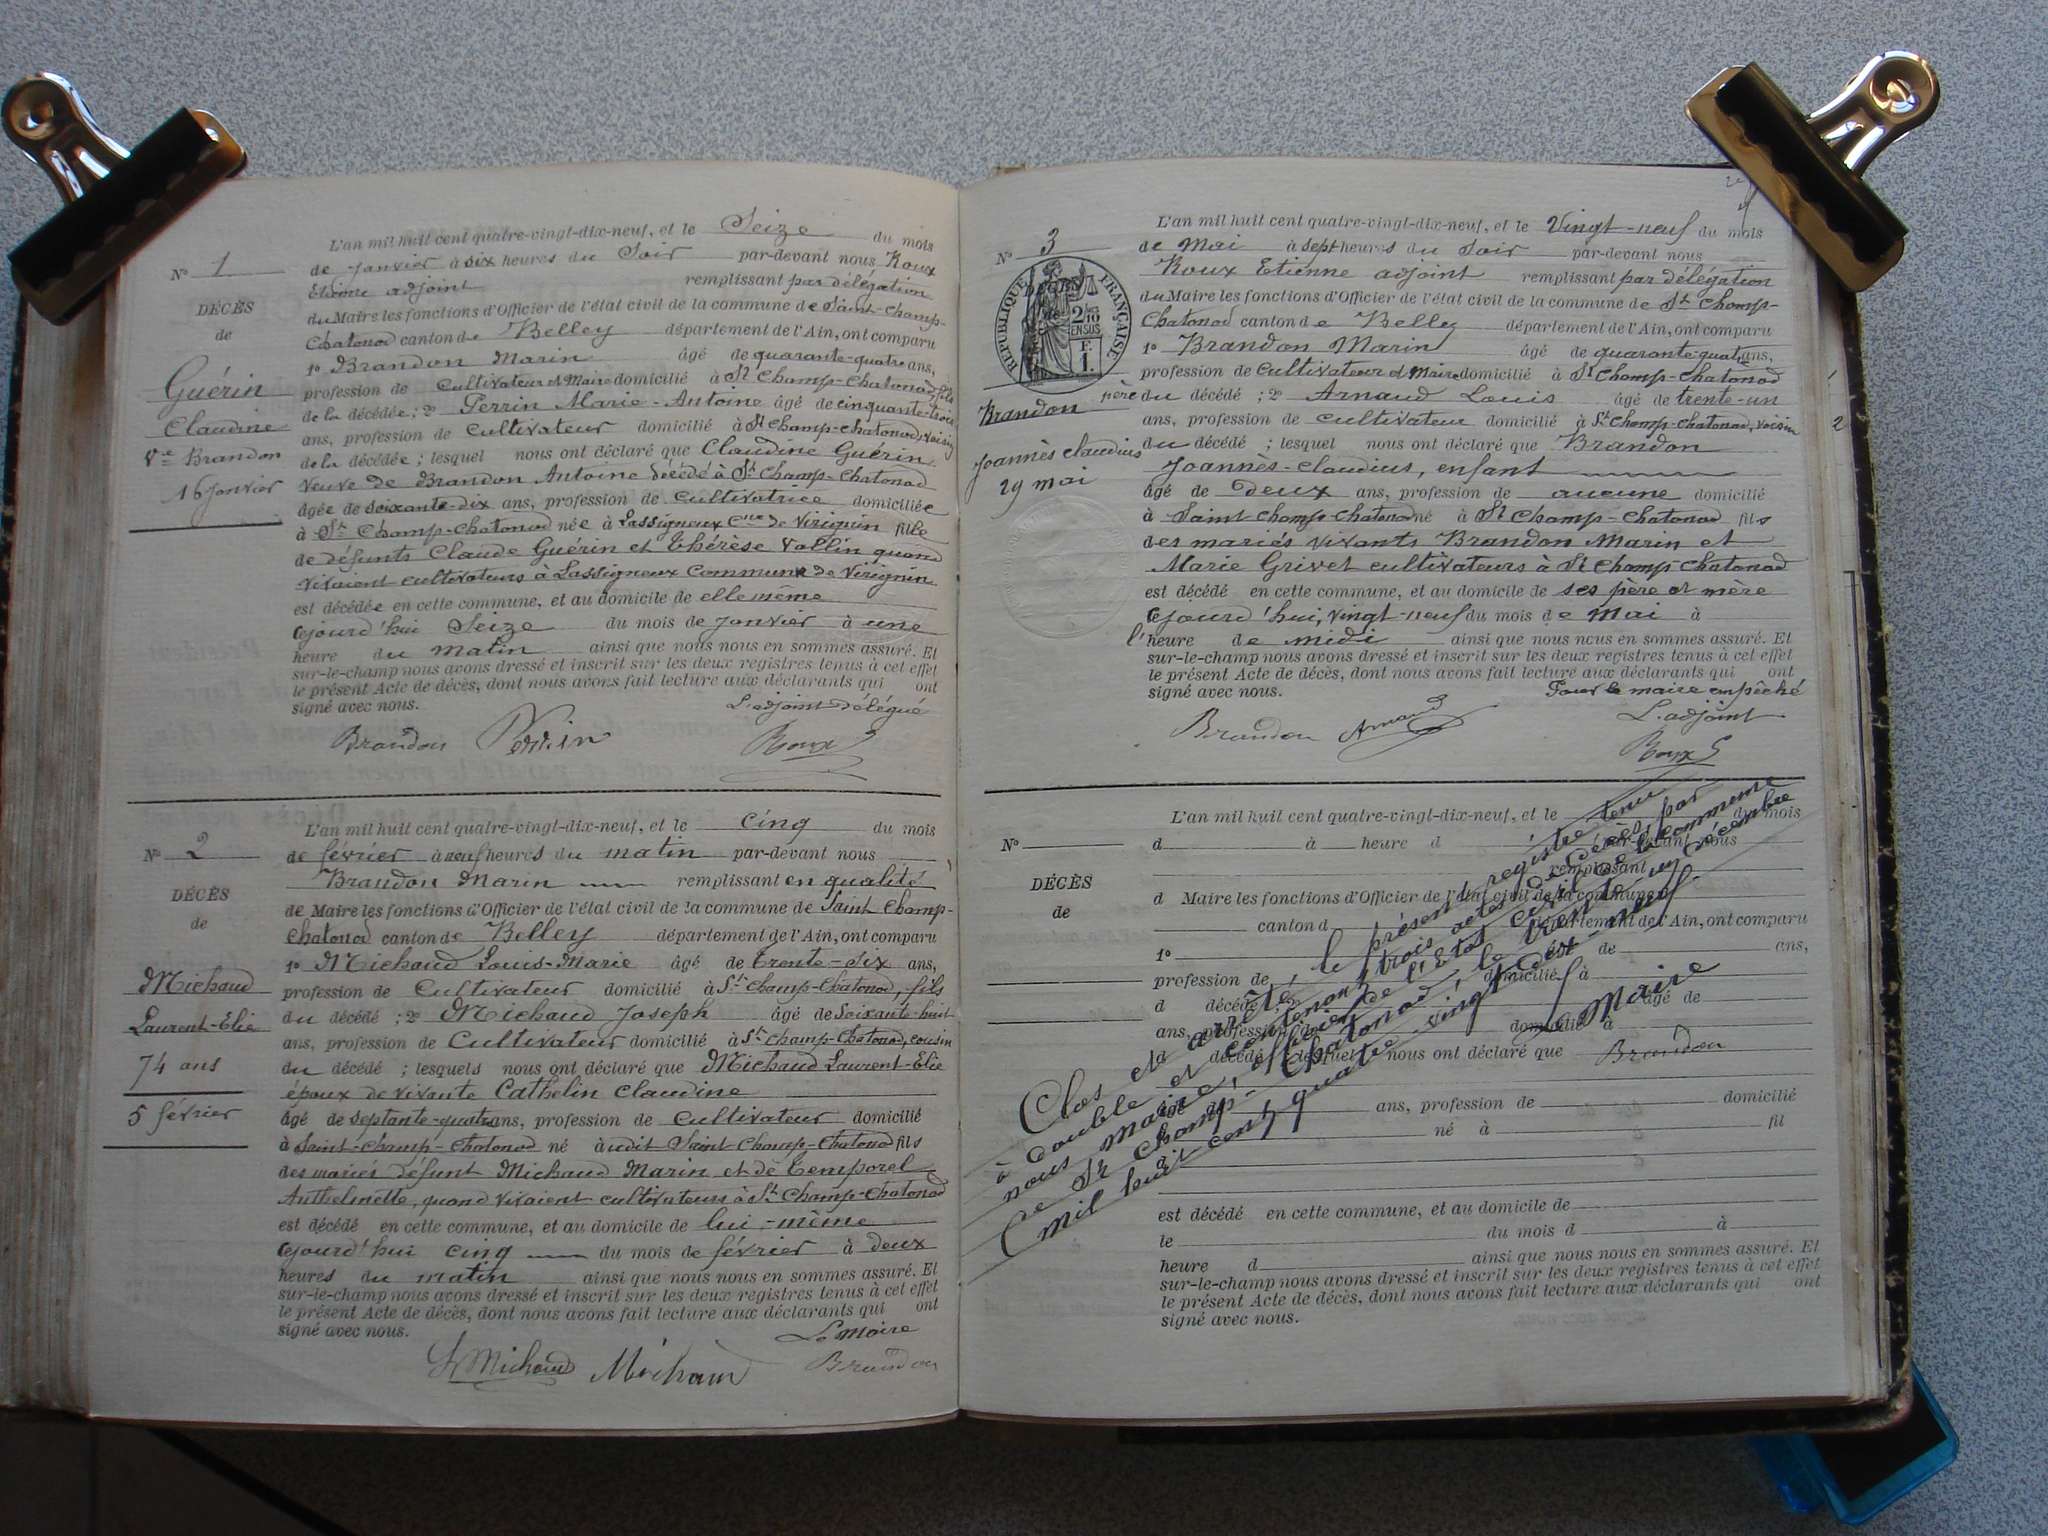 N° 1
DÉCÈS
de
Guérin
Claudine
Vve Brandon
16 janvier
L'an mil huit cent quatre-vingt-dix-neuf, et le Seize du mois
de janvier à six heures du Soir par-devant nous Roux
Etienne adjoint remplissant par délégation
du Maire les fonctions d'Officier de l'état civil de la commune de Saint-Champ-
Chatonod canton de Belley département de l'Ain, ont comparu
1° Brandon Marin âgé de quarante-quatre ans,
profession de Cultivateur et Maire domicilié à St Champ-Chatonod, fils
de la décédée ; 2° Perrin Marie-Antoine âgé de cinquante-trois
ans, profession de Cultivateur domicilié à St Champ-Chatonod, voisin
de la décédée ; lesquel nous ont déclaré que Claudine Guérin
veuve de Brandon Antoine décédé à St Champ-Chatonod
âgée de soixante-dix ans, profession de Cultivatrice domiciliée
à St Champ-Chatonod née à Lassigneux Cne de Virignin fille
de défunts Claude Guérin et Thérèse Vollin quand
vivaient cultivateurs à Lassigneux Commune de Virignin
est décédée en cette commune, et au domicile de elle même
Cejourd'hui Seize du mois de janvier à une
heure du matin ainsi que nous nous en sommes assuré. Et
sur-le-champ nous avons dressé et inscrit sur les deux registres tenus à cet effet
le présent Acte de décès, dont nous avons fait lecture aux déclarants qui ont
signé avec nous. L'adjoint délégué
Brandon Perrin Roux
N° 2
DÉCÈS
de
Michaud
Laurent-Elie
74 ans
5 février
L'an mil huit cent quatre-vingt-dix-neuf, et le cinq du mois
de février à neuf heures du matin par-devant nous
Brandon Marin remplissant en qualité
de Maire les fonctions d'Officier de l'état civil de la commune de Saint Champ-
Chatonod canton de Belley département de l'Ain, ont comparu
1° Michaud Louis-Marie âgé de trente-six ans,
profession de Cultivateur domicilié à St Champ-Chatonod, fils
du décédé ; 2° Michaud Joseph âgé de Soixante-huit
ans, profession de Cultivateur domicilié à St Champ-Chatonod, cousin
du décédé ; lesquels nous ont déclaré que Michaud Laurent-Elie
époux de vivante Cathelin Claudine
âgé de septante-quatre ans, profession de Cultivateur domicilié
à Saint-Champ-Chatonod né audit Saint-Champ-Chatonod fils
des mariés défunt Michaud Marin et de Temporel
Anthelmette, quand vivaient cultivateurs à St Champ-Chatonod
est décédé en cette commune, et au domicile de lui-même
Cejourd'hui cinq du mois de février à deux
heures du matin ainsi que nous nous en sommes assuré. Et
sur-le-champ nous avons dressé et inscrit sur les deux registres tenus à cet effet
le présent Acte de décès, dont nous avons fait lecture aux déclarants qui ont
signé avec nous. Le Maire
Michaud Michaud Brandon
N° 3
RÉPUBLIQUE FRANÇAISE
2/10 EN SUS
F. 1.
Brandon
Joannès Claudius
29 mai
L'an mil huit cent quatre-vingt-dix-neuf, et le Vingt-neuf du mois
de Mai à sept heures du Soir par-devant nous
Roux Etienne adjoint remplissant par délégation
du Maire les fonctions d'Officier de l'état civil de la commune de St Champ-
Chatonod canton de Belley département de l'Ain, ont comparu
1° Brandon Marin âgé de quarante-quatre ans,
profession de Cultivateur et Maire domicilié à St Champ-Chatonod
père du décédé ; 2° Arnaud Louis âgé de trente-un
ans, profession de cultivateur domicilié à St Champ-Chatonod, voisin
du décédé ; lesquel nous ont déclaré que Brandon
Joannès-Claudius, enfant
âgé de deux ans, profession de aucune domicilié
à Saint Champ-Chatonod né à St Champ-Chatonod fils
des mariés vivants Brandon Marin et
Marie Grivet cultivateurs à St Champ Chatonod
est décédé en cette commune, et au domicile de ses père et mère
Cejourd'hui, vingt-neuf du mois de Mai à
l'heure de midi ainsi que nous nous en sommes assuré. Et
sur-le-champ nous avons dressé et inscrit sur les deux registres tenus à cet effet
le présent Acte de décès, dont nous avons fait lecture aux déclarants qui ont
signé avec nous. Pour le maire empêché
L'adjoint
Brandon Arnaud Roux
N°
DÉCÈS
de
L'an mil huit cent quatre-vingt-dix-neuf, et le du mois
d à heure d par-devant nous
remplissant
d Maire les fonctions d'Officier de l'état civil de la commune d
canton d département de l'Ain, ont comparu
1° âgé de ans,
profession de domicilié à
d décédé ; 2° âgé de
ans, profession de domicilié à
d décédé ; lesquel nous ont déclaré que
âgé de ans, profession de domicilié
à né à fil
est décédé en cette commune, et au domicile de
le du mois d à
heure d ainsi que nous nous en sommes assuré. Et
sur-le-champ nous avons dressé et inscrit sur les deux registres tenus à cet effet
le présent Acte de décès, dont nous avons fait lecture aux déclarants qui ont
signé avec nous.
Clos et arrêté, le présent registre tenu
à double et contenant trois actes de décès par
nous, Maire, officier de l'état civil de la commune
de St Champ-Chatonod, le trente un décembre
mil huit cent quatre-vingt-dix-neuf.
Le Maire
Brandon